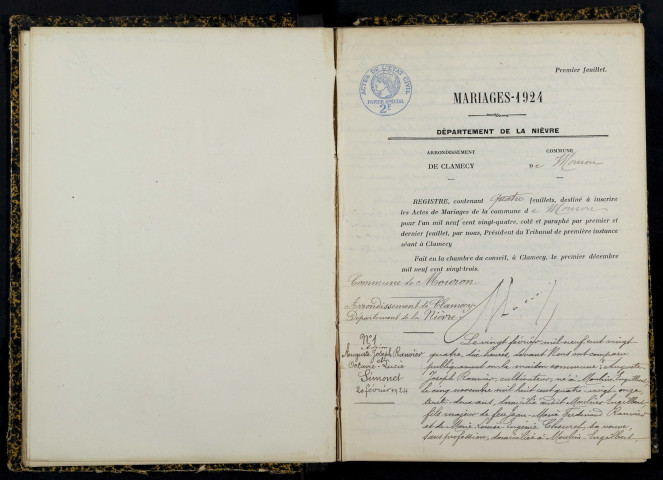 Premier feuillet.
ACTES DE L'ETAT CIVIL
PAPIER SPECIAL
2F
MARIAGES-1924
DÉPARTEMENT DE LA NIÈVRE
ARRONDISSEMENT
COMMUNE
DE CLAMECY
De Mouron
REGISTRE, contenant quatre feuillets, destiné à inscrire
les Actes de Mariages de la commune de Mouron
pour l'an mil neuf cent vingt-quatre, coté et paraphé par premier et
dernier feuillet, par nous, Président du Tribunal de première instance
séant à Clamecy
Fait en la chambre du conseil, à Clamecy, le premier décembre
mil neuf cent vingt-trois.
Commune de Mouron
Arrondissement de Clamecy
Département de la Nièvre
N° 1
Auguste Joseph Rannier
et
Octavie Lucie
Simonet
20 février 1924
Le vingt février mil neuf cent vingt
quatre, dix heures, devant Nous ont comparu
publiquement en la maison commune: Auguste
Joseph Rannier, cultivateur, né à Moulins Engilbert
le cinq novembre mil huit cent quatre-vingt onze
trente deux ans, domicilié audit Moulins Engilbert
fils majeur de feu Jean-Marie Ferdinand Rannier
et de Marie Louise Eugénie, sa veuve,
sans profession, domiciliée à Moulin-Engilbert,